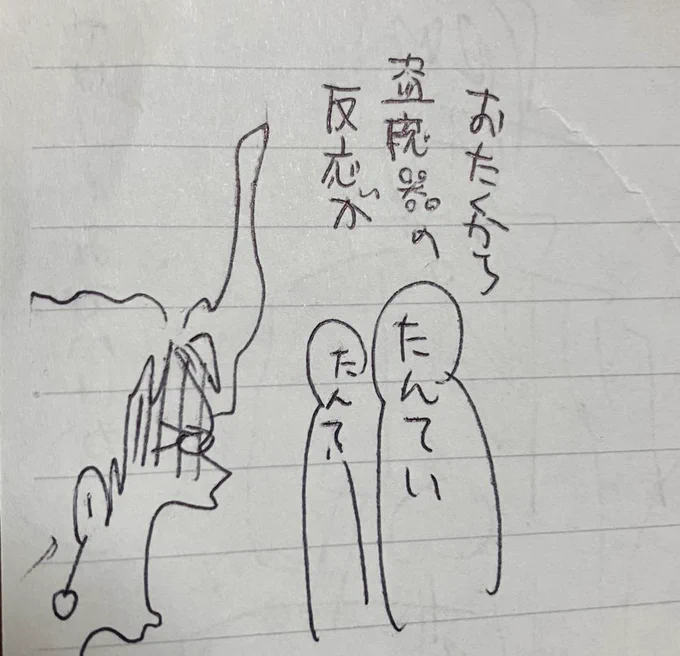 おたくから
盗聴器の
反応が
たんてい
たんてい